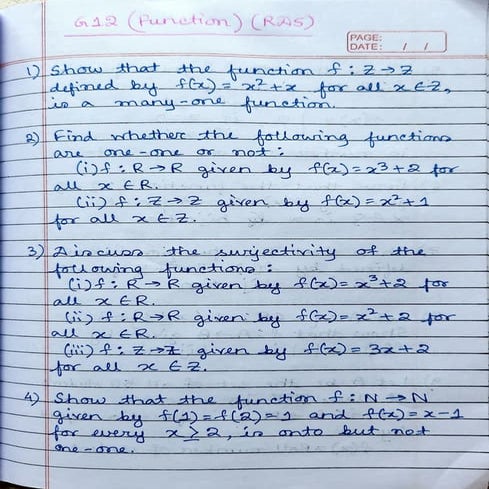 G12 (Function) (RAS)
PAGE:
DATE: / /
1) Show that the function f : Z → Z
defined by f(x) = x² + x for all x ∈ Z,
is a many-one function.
2) Find whether the following functions
are one-one or not :
(i) f : R → R given by f(x) = x³ + 2 for
all x ∈ R.
(ii) f : Z → Z given by f(x) = x² + 1
for all x ∈ Z.
3) Discuss the surjectivity of the
following functions :
(i) f : R → R given by f(x) = x³ + 2 for
all x ∈ R.
(ii) f : R → R given by f(x) = x² + 2 for
all x ∈ R.
(iii) f : Z → Z given by f(x) = 3x + 2
for all x ∈ Z.
4) Show that the function f : N → N
given by f(1) = f(2) = 1 and f(x) = x - 1
for every x ≥ 2, is onto but not
one-one.